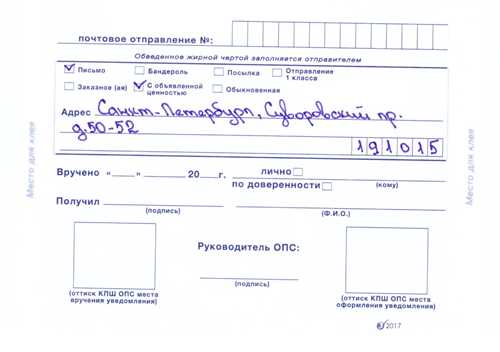 почтовое отправление №:
Обведенное жирной чертой заполняется отправителем
Письмо Бандероль Посылка Отправление 1 класса
Заказное (ая) С объявленной ценностью Обыкновенная
Адрес Санкт-Петербург, Суворовский пр.
д.50-52
191015
Вручено «___» ______ 20__г. лично
по доверенности
(кому)
Получил
(подпись) (Ф.И.О.)
Руководитель ОПС:
(подпись)
(оттиск КПШ ОПС места вручения уведомления)
(оттиск КПШ ОПС места оформления уведомления)
Место для клея
Место для клея
2017